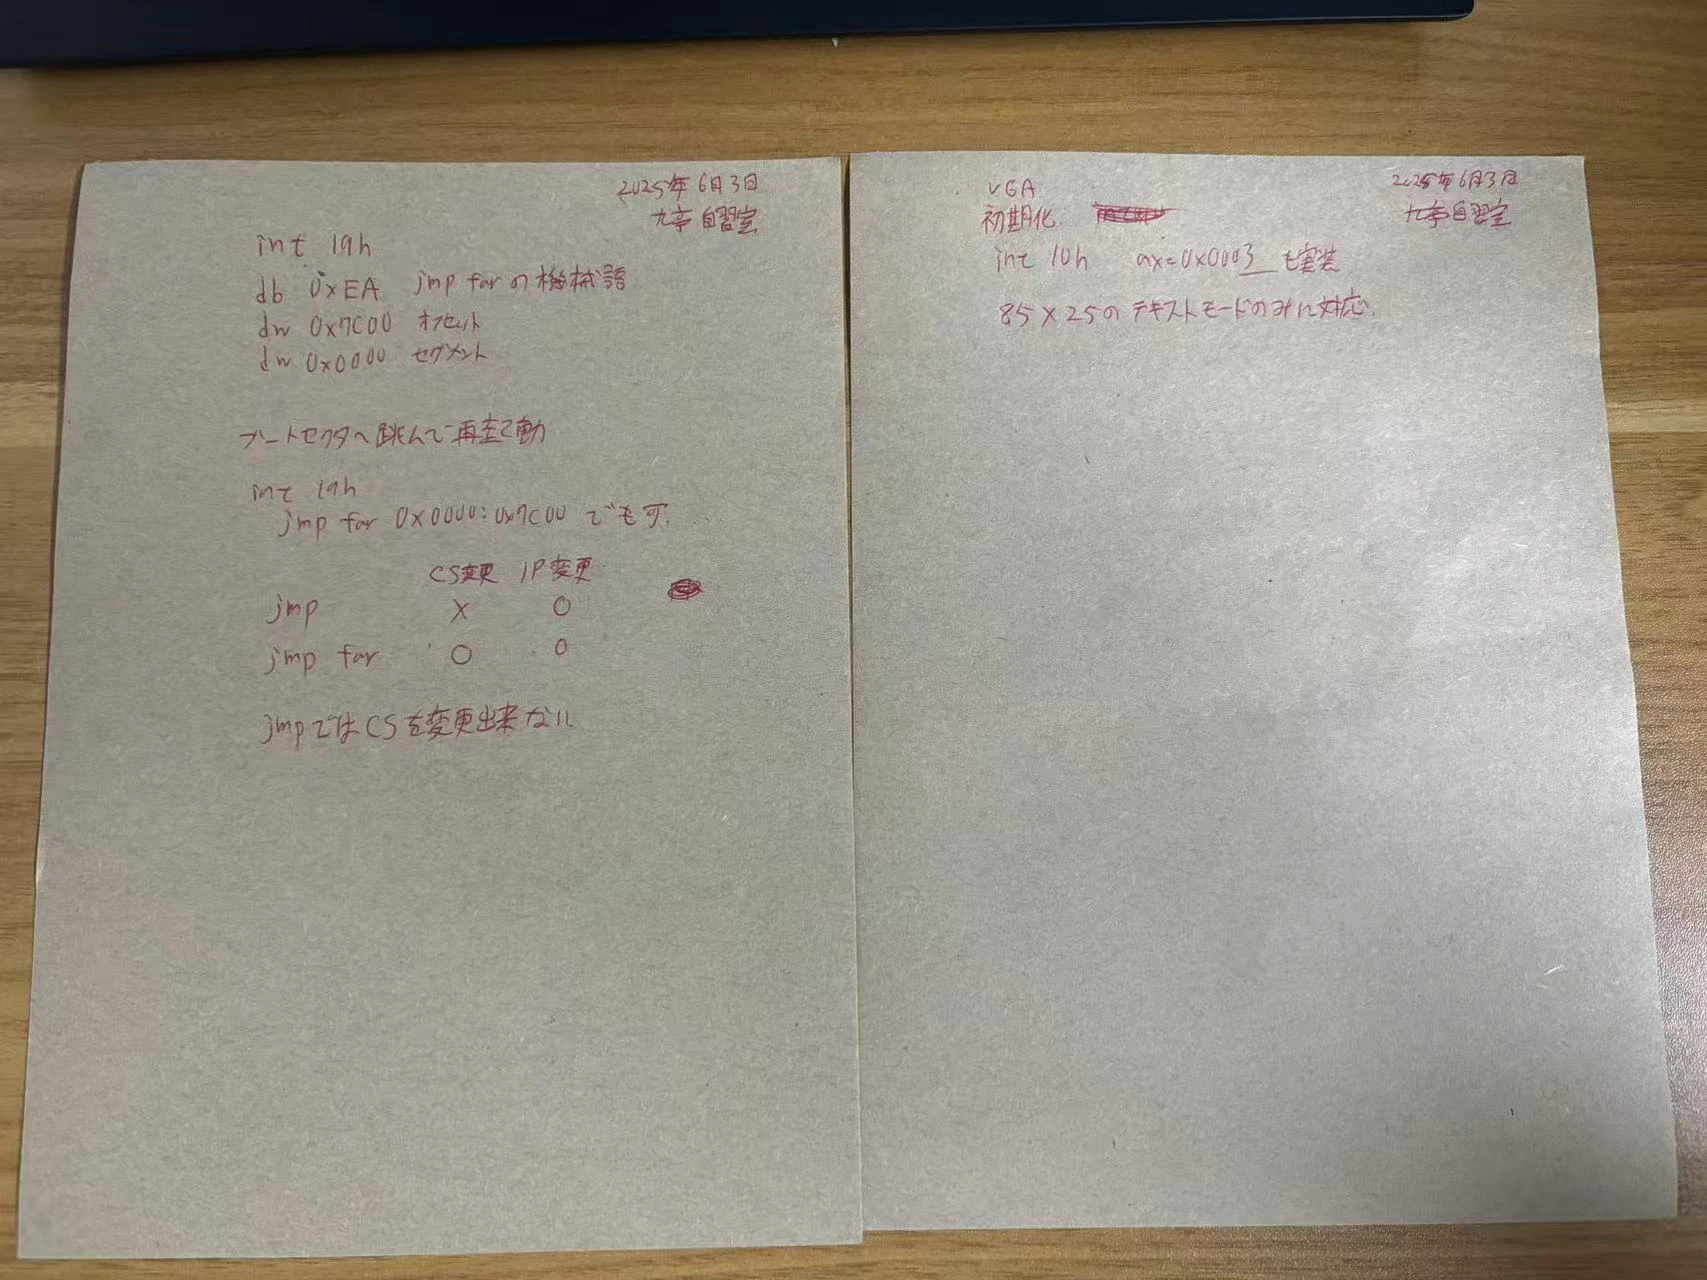 2025年6月3日
九亭自習室
int 19h
db 0xEA jmp farの機械語
dw 0x7C00 オフセット
dw 0x0000 セグメント
ブートセクタへ跳んで再起動
int 19h
jmp far 0x0000:0x7C00 でも可.
CS変更 IP変更
jmp × ○
jmp far ○ ○
jmpではCSを変更出来ない
2025年6月3日
九亭自習室
VGA
初期化
int 10h ax=0x0003 も実装
85×25のテキストモードのみに対応.